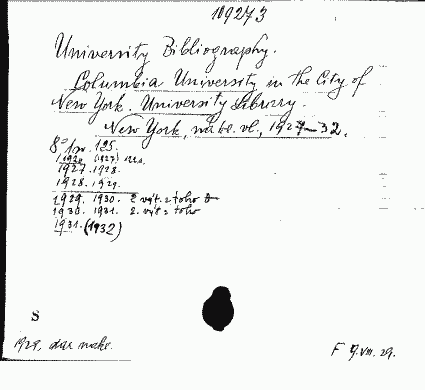 109273
University Bibliography.
Columbia University in the City of
New York. University Library.
New York, nakl. vl., 1927-32.
8° 1m. 195.
1926 (1927)
1927. 1928.
1928. 1929.
1929. 1930. 2 výt. z toho
1930. 1931. 2 výt. z toho
1931. (1932)
S
1929, dar nakl.
F 9.VIII.29.